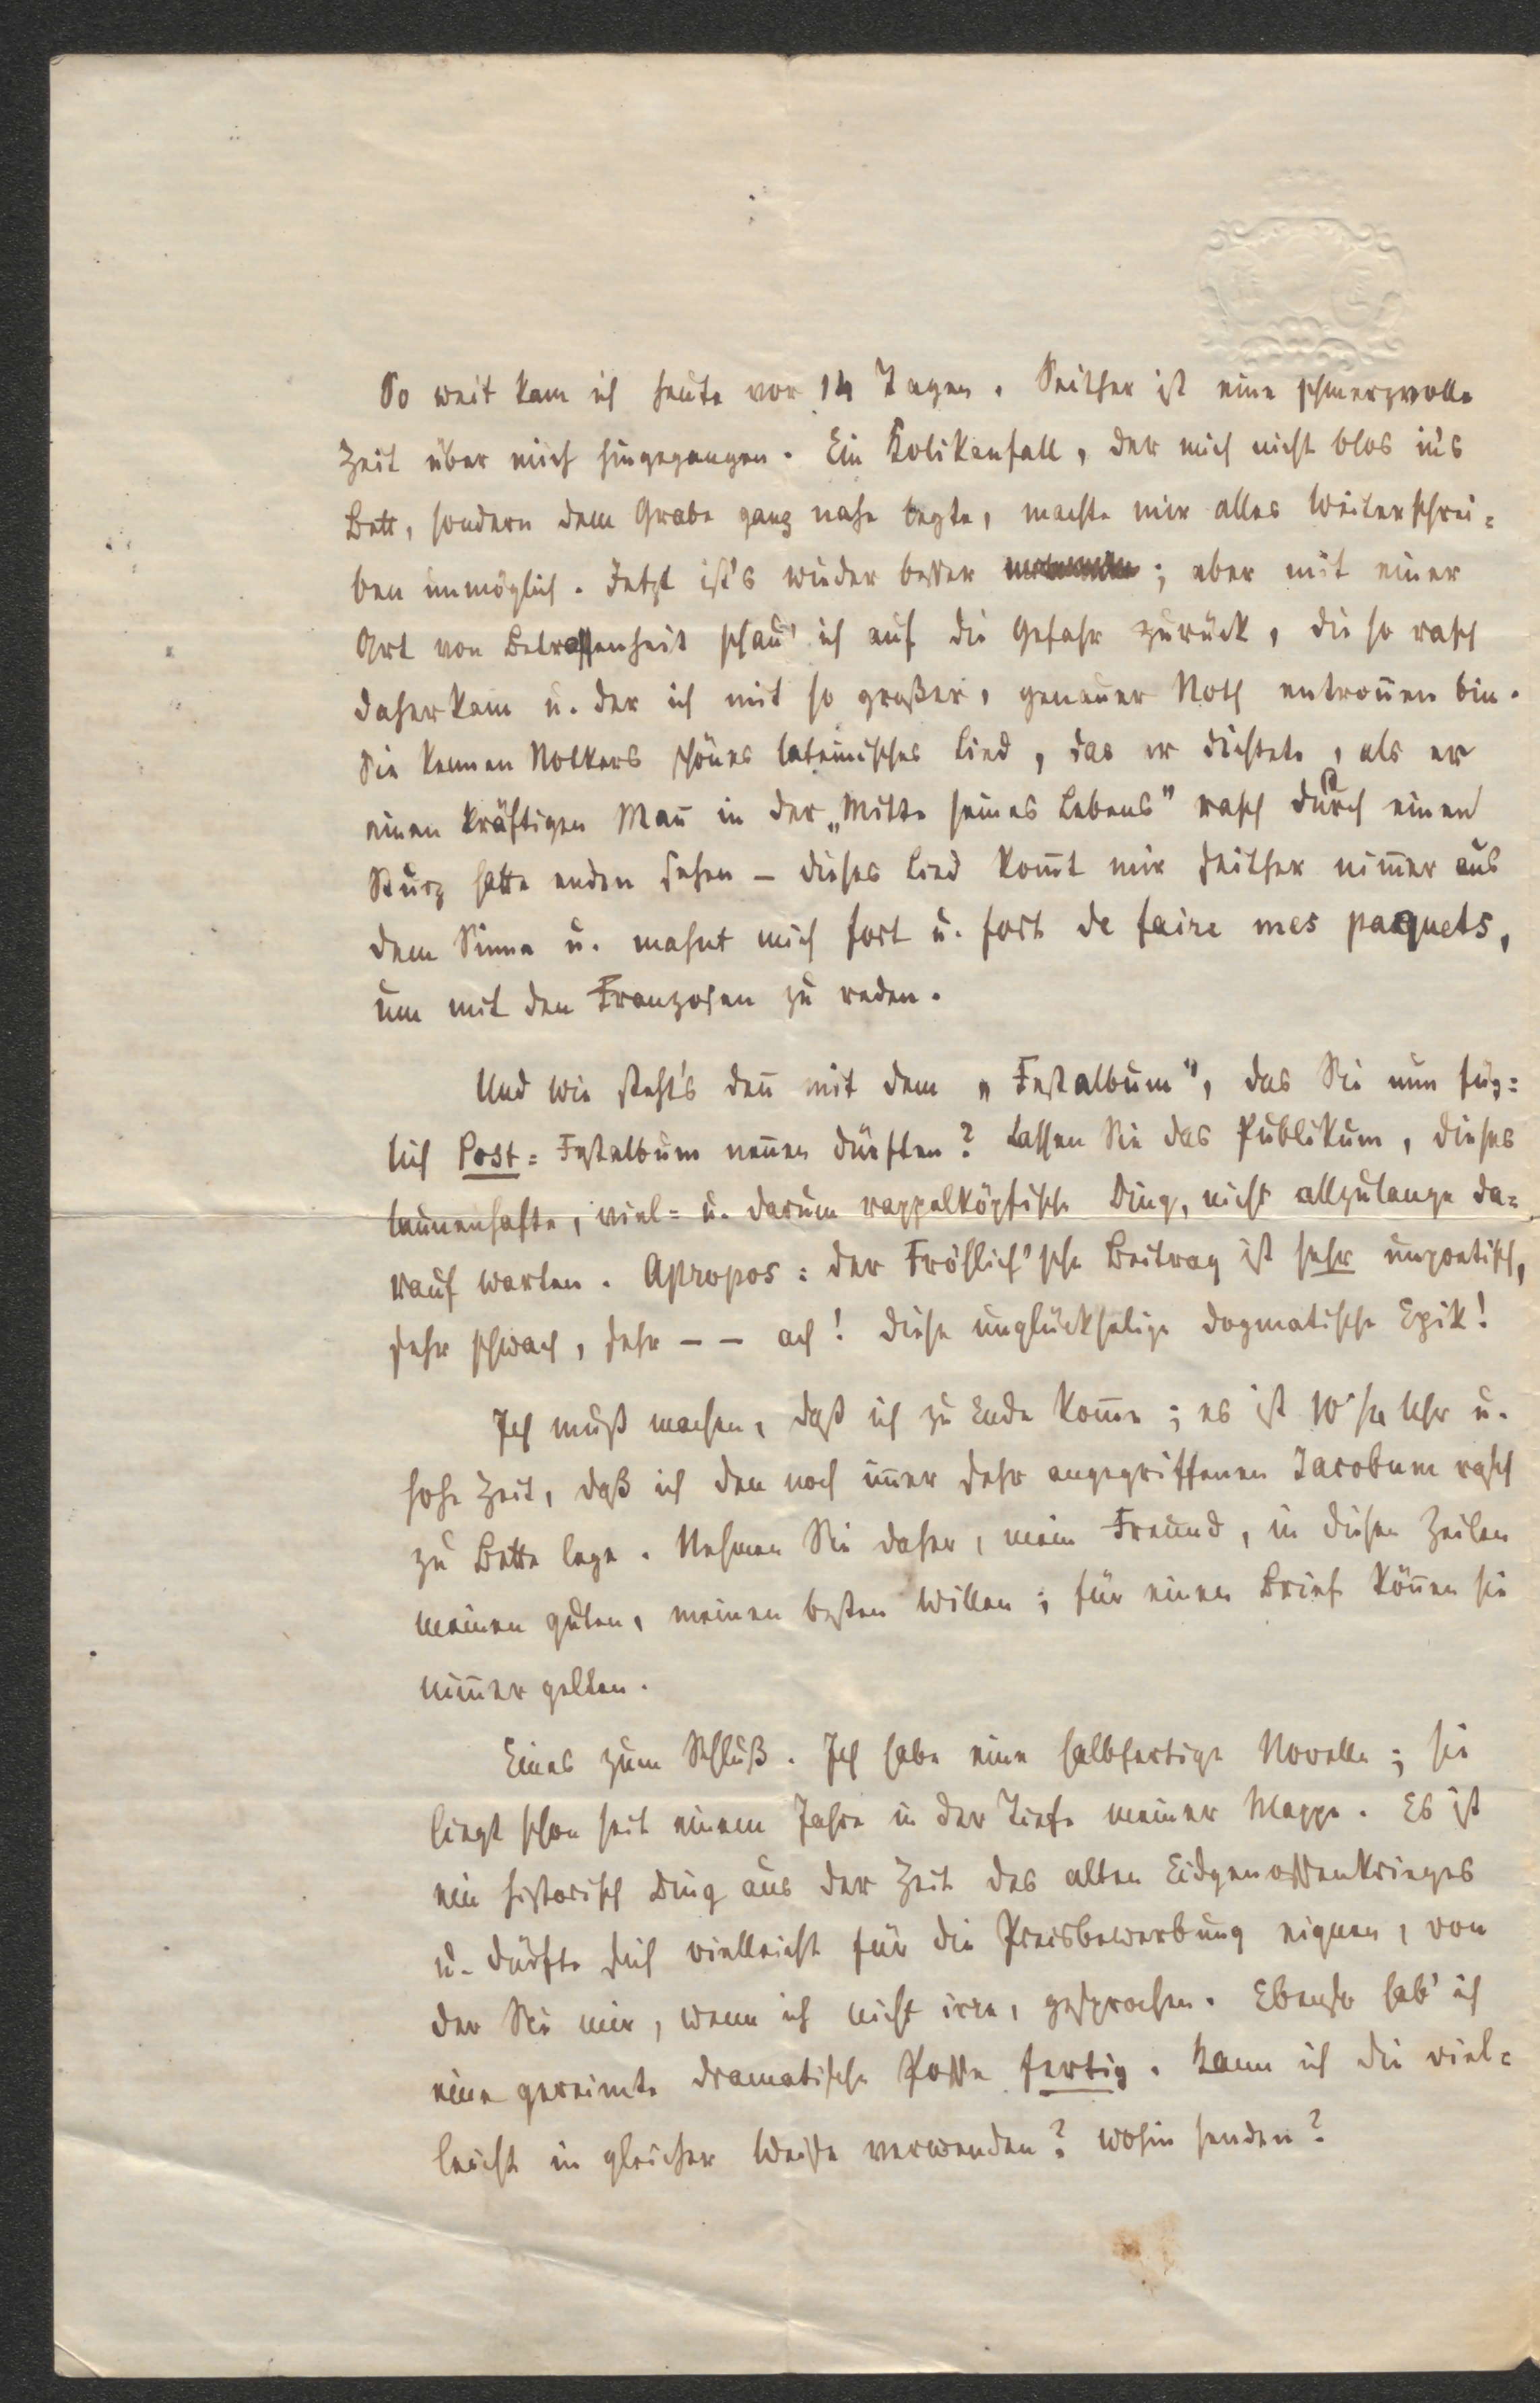 So weit kam ich heute vor 14 Tagen. Seither ist eine schmerzvolle
Zeit über mich hingegangen. Ein Kolikanfall, der mich nicht blos in's
Bett, sondern dem Grabe ganz nahe legte, machte mir alles Weiterschrei=
ben unmöglich. Jetzt ist's wieder besser ; aber mit einer
Art von Betroffenheit schau' ich auf die Gefahr zurück, die so rasch
daherkam u. der ich mit so großer, genauer Noth entroñen bin.
Sie kennen Notkers schönes lateinisches Lied, das er dichtete, als er
einen kräftigen Mañ in der „Mitte seines Lebens" rasch durch einen
Sturz hatte enden sehen – dieses Lied kom̃t mir seither nim̃er aus
dem Sinne u. mahnt mich fort u. fort de faire mes paquets,
um mit den Franzosen zu reden.
Und wie steht's deñ mit dem „Festalbum", das Sie nun füg=
lich Post=Festalbum neñen dürften? Lassen Sie das Publikum, dieses
launenhafte, viel= u. darum rappelköpfische Ding, nicht allzulange da=
rauf warten. Apropos: der Fröhlich'sche Beitrag ist sehr unpoetisch,
sehr schwach, sehr – – ach! diese unglückselige dogmatische Epik!
Ich muß machen, daß ich zu Ende kom̃e; es ist 10 Uhr u.
hohe Zeit, daß ich den noch im̃er sehr angegriffenen Jacobum rasch
zu Bette lege. Nehmen Sie daher, mein Freund, in diesen Zeilen
meinen guten, meinen besten Willen; für einen Brief köñen sie
nim̃er gelten.
Eines zum Schluß. Ich habe eine halbfertige Novelle; sie
liegt schon seit einem Jahre in der Tiefe meiner Mappe. Es ist
ein historisch Ding aus der Zeit des alten Eidgenossenkrieges
u. dürfte sich vielleicht für die Preisbewerbung eignen, von
der Sie mir, wenn ich nicht irre, gesprochen. Ebenso hab' ich
eine gereimte dramatische Posse fertig. Kann ich die viel=
leicht in gleicher Weise verwenden? Wohin senden?